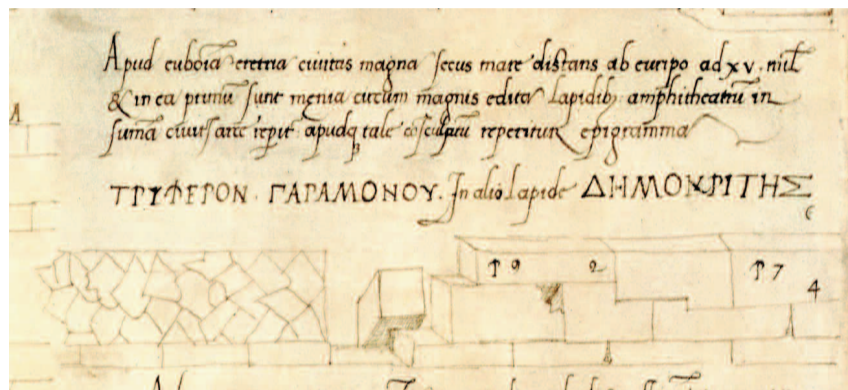 Apud euboiã eretria ciuitas magna secus mare distans ab euripo ad xv. mil
& in ea primũ sunt menia circum magnis edita lapidibꝫ amphitheatrũ in
sumã arce apudq tale cõsculptũ reperitur epigramma
ΤΡΥΦΕΡΟΝ · ΓΑΡΑΜΟΝΟΥ. In alio lapide ΔΗΜΟΚΡΙΤΗΣ
9 2 7
4